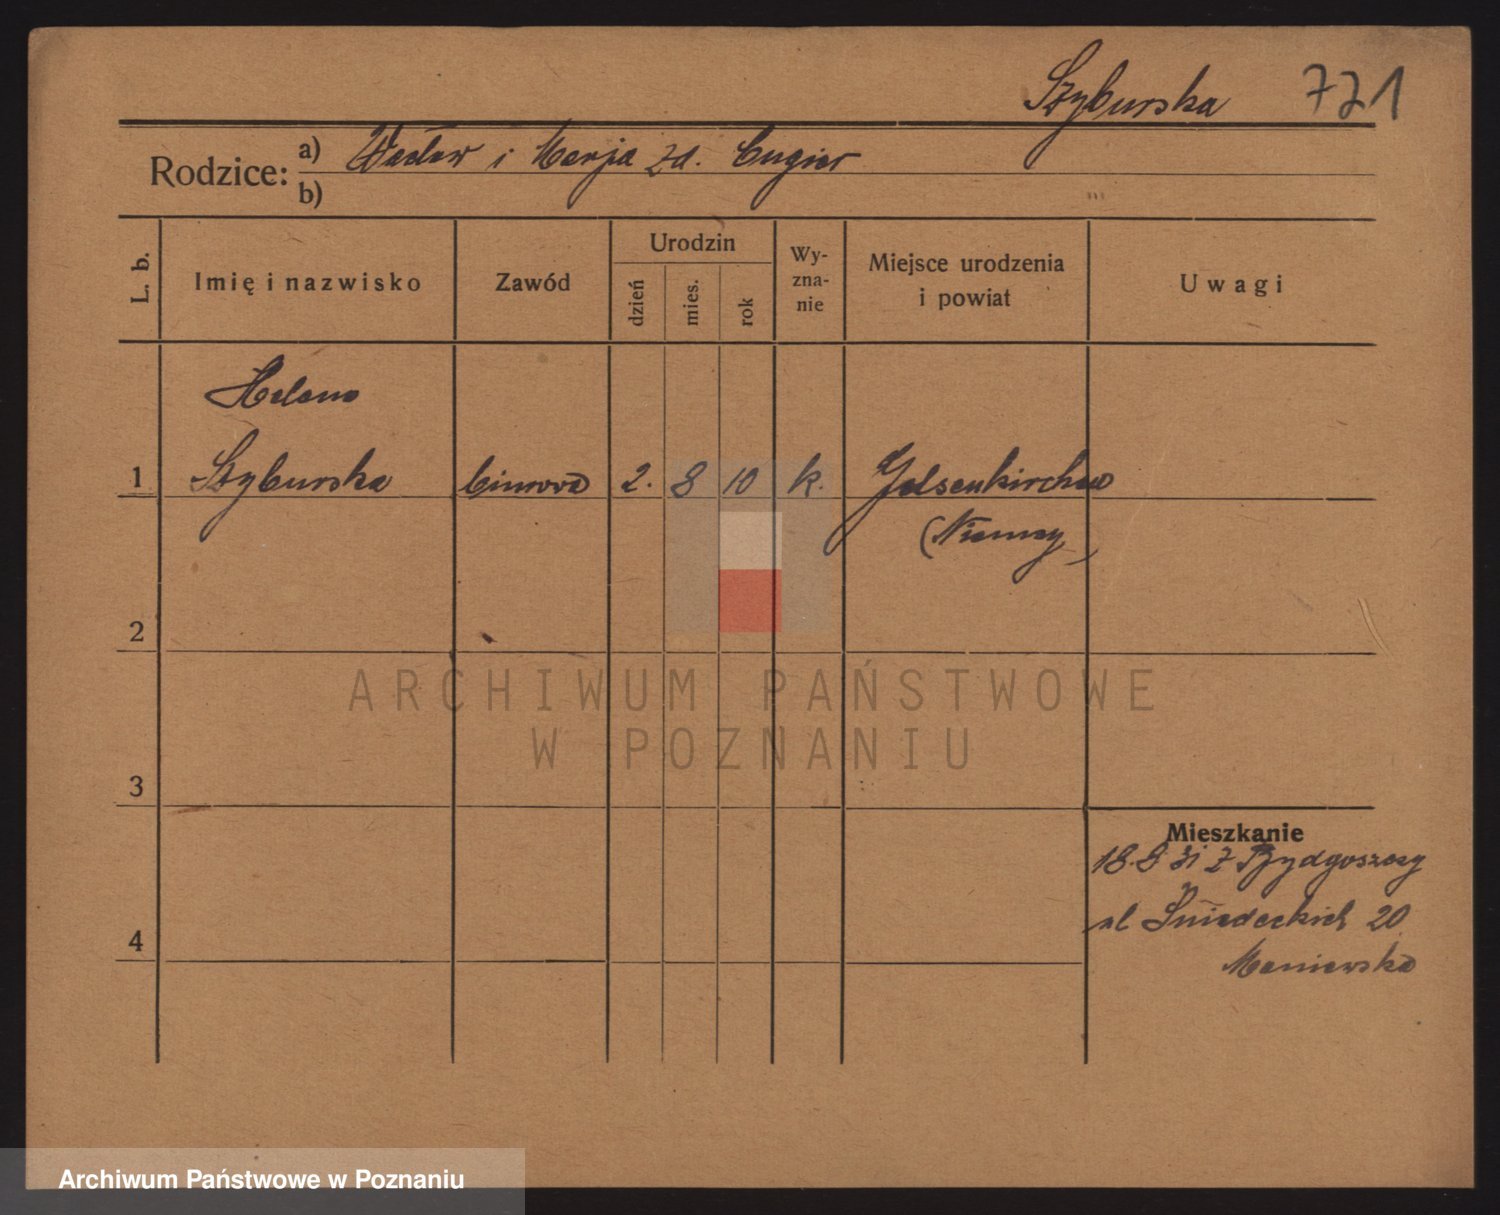 Szyburska 721
Rodzice: a) Wacław i Marja zd. Cugier
b)
L. b.
Imię i nazwisko
Zawód
Urodzin
dzień
mies.
rok
Wy-
zna-
nie
Miejsce urodzenia
i powiat
Uwagi
Helena
1 Szyburska biurowa 2. 8 10 k. Gelsenkirchen
(Niemcy)
2
3
4
Mieszkanie
18. 9 31 z Bydgoszczy
ul Śniadeckich 20
Maniewska
ARCHIWUM PAŃSTWOWE
W POZNANIU
Archiwum Państwowe w Poznaniu